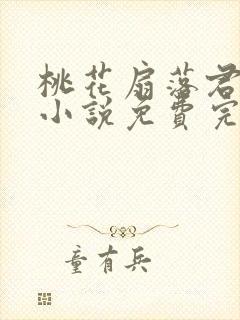 桃花扇落君
小說免費完
童有兵